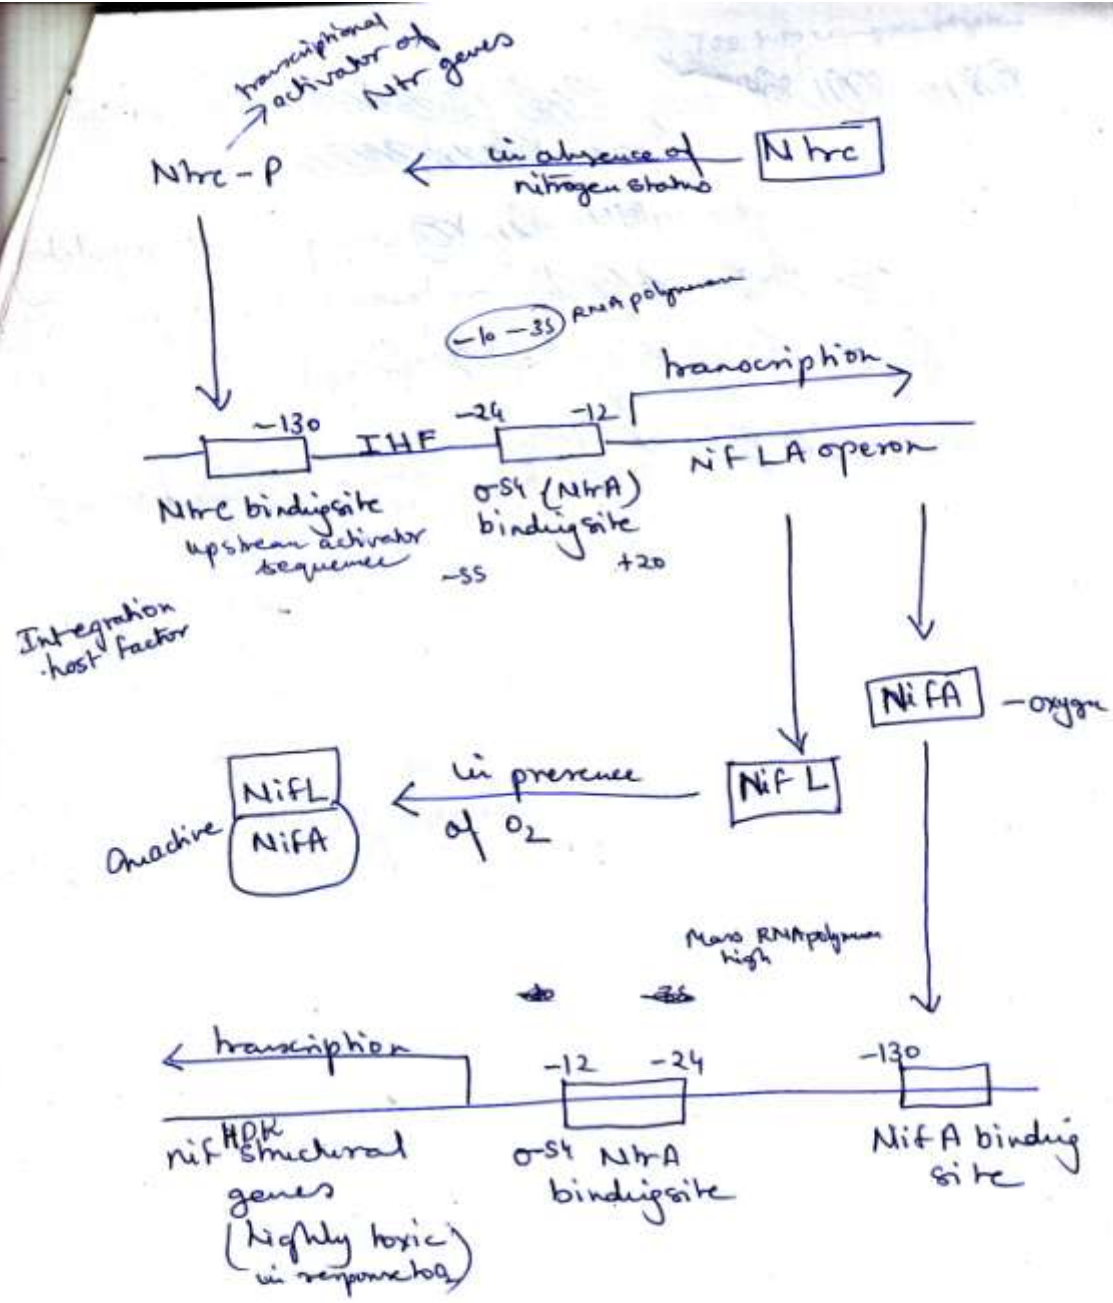 transcriptional
activator of
Ntr genes
Ntrc - P
in absence of
nitrogen status
Ntrc
-10 -35 RNA polymerase
transcription
~130
IHF
-24
-12
Nif LA operon
Ntrc binding site
upstream activator
sequence
σ54 (NtrA)
binding site
-55
+20
Integration
host factor
NifA
- oxygen
NifL
NifA
in presence
of O2
Nif L
RNA polymerase
high
transcription
-12
-24
-130
nif HDK structural
genes
(highly toxic
in response to O2)
σ54 NtrA
binding site
NifA binding
site